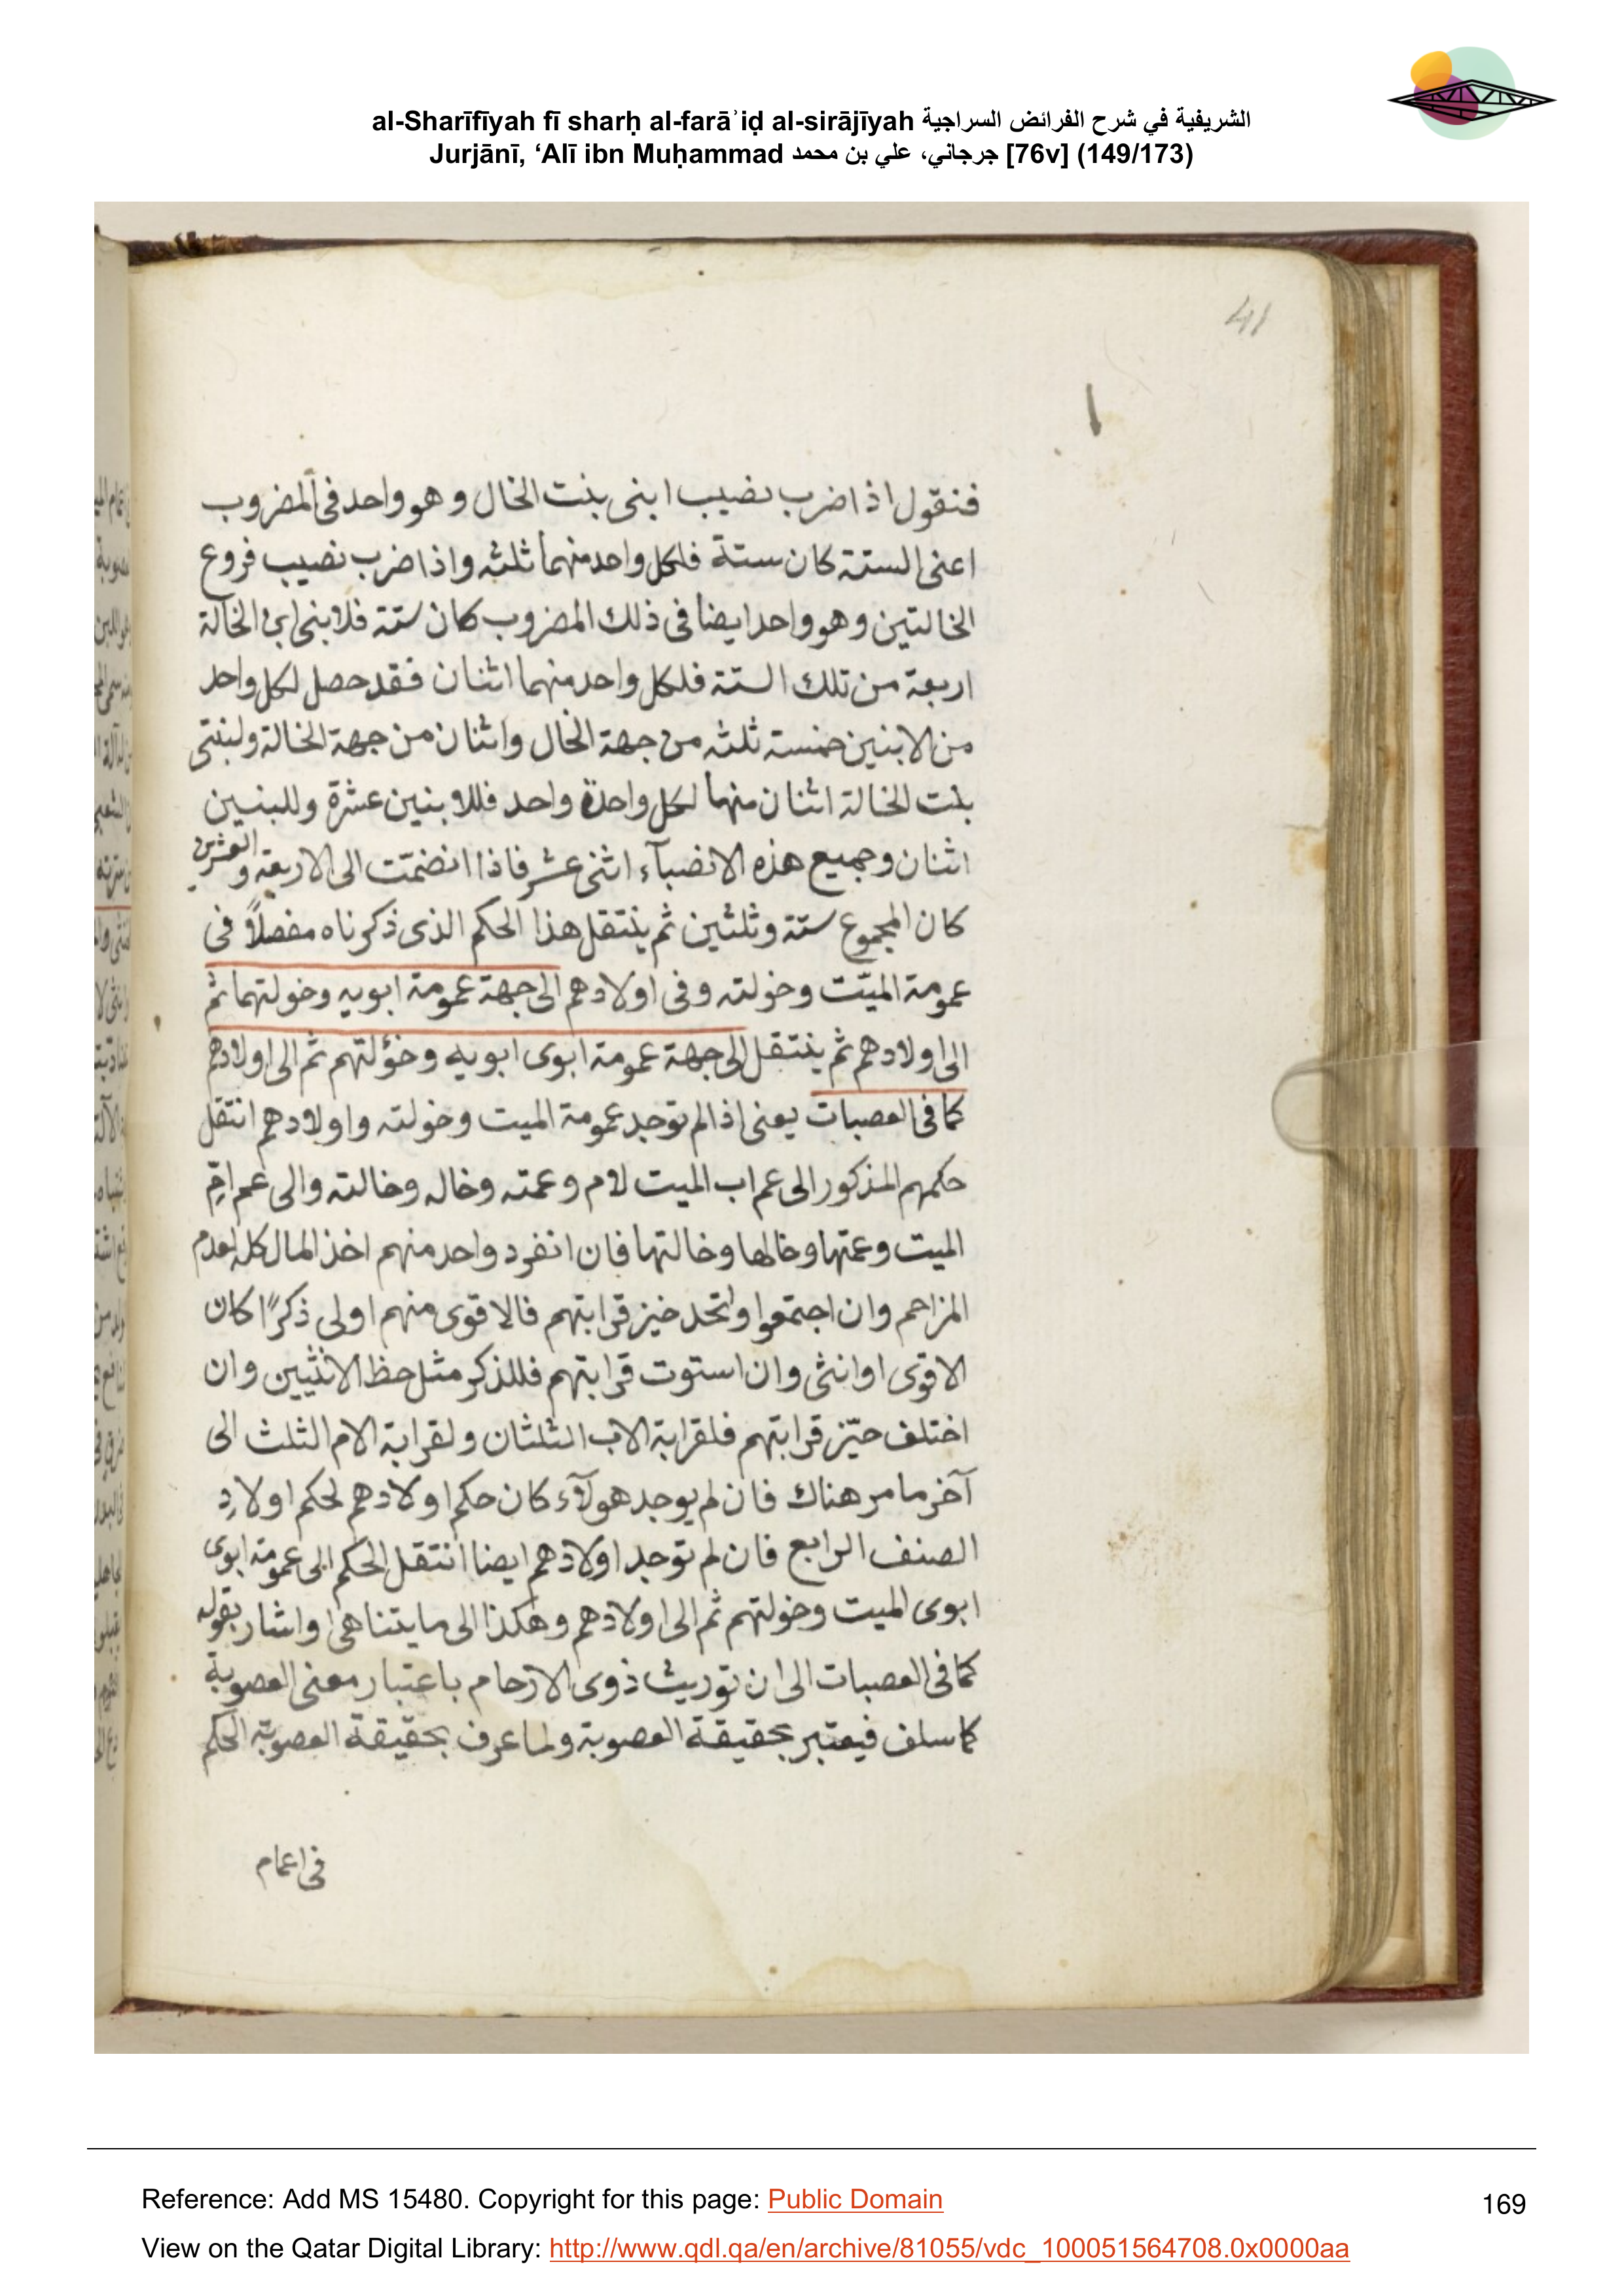 al-Sharīfīyah fī sharḥ al-farāʾiḍ al-sirājīyah الشريفية في شرح الفرائض السراجية
Jurjānī, ‘Alī ibn Muḥammad جرجاني، علي بن محمد [76v] (149/173)
41
فنقول اذا ضرب نصيب ابنى بنت الخال وهو واحد فى المضروب
اعنى الستة كان ستة فلكل واحد منهما ثلثه واذا ضرب نصيب فروع
الخالتين وهو واحد ايضا فى ذلك المضروب كان ستة فلابنى ابن الخالة
اربعة من تلك الستة فلكل واحد منهما اثنان فقد حصل لكل واحد
من الابنين خمسة ثلثه من جهة الخال واثنان من جهة الخالة ولبنتى
بنت الخالة اثنان منهما لكل واحدة واحد فللابنين عشرة وللبنين
اثنان وجميع هذه الانصبآء اثنى عشر فاذا انضمّت الى الاربعة والعشرين
كان المجموع ستة وثلثين ثم ينتقل هذا الحكم الذى ذكرناه مفصلاً فى
عمومة الميّت وخولته وفى اولادهم الى جهة عمومة ابويه وخولتهما ثم
الى اولادهم ثم ينتقل الى جهة عمومة ابوى ابويه وخؤلتهم ثم الى اولادهم
كما فى العصبات يعنى اذا لم توجد عمومة الميت وخولته واولادهم انتقل
حكمهم المذكور الى عم اب الميت لام وعمته وخاله وخالته والى عم امّ
الميت وعمتها وخالها وخالتها فان انفرد واحد منهم اخذ المال كله لعدم
المزاحم وان اجتمعوا واتحد حيز قرابتهم فالاقوى منهم اولى ذكرًا كان
الاقوى او انثى وان استوت قرابتهم فللذكر مثل حظ الانثيين وان
اختلف حيّز قرابتهم فلقرابة الاب الثلثان ولقرابة الام الثلث الى
آخر ما مر هناك فان لم يوجد هولآء كان حكم اولادهم لحكم اولادِ
الصنف الرابع فان لم توجد اولادهم ايضا انتقل الحكم الى عمومة ابوى
ابوى الميت وخولتهم ثم الى اولادهم وهكذا الى ما يتناهى واشار بقوله
كما فى العصبات الى ان توريث ذوى الارحام باعتبار معنى العصوبة
كما سلف فيعتبر بحقيقة العصوبة ولما عرف بحقيقة العصوبة الحكم
فى اعمام
Reference: Add MS 15480. Copyright for this page: Public Domain
169
View on the Qatar Digital Library: http://www.qdl.qa/en/archive/81055/vdc_100051564708.0x0000aa